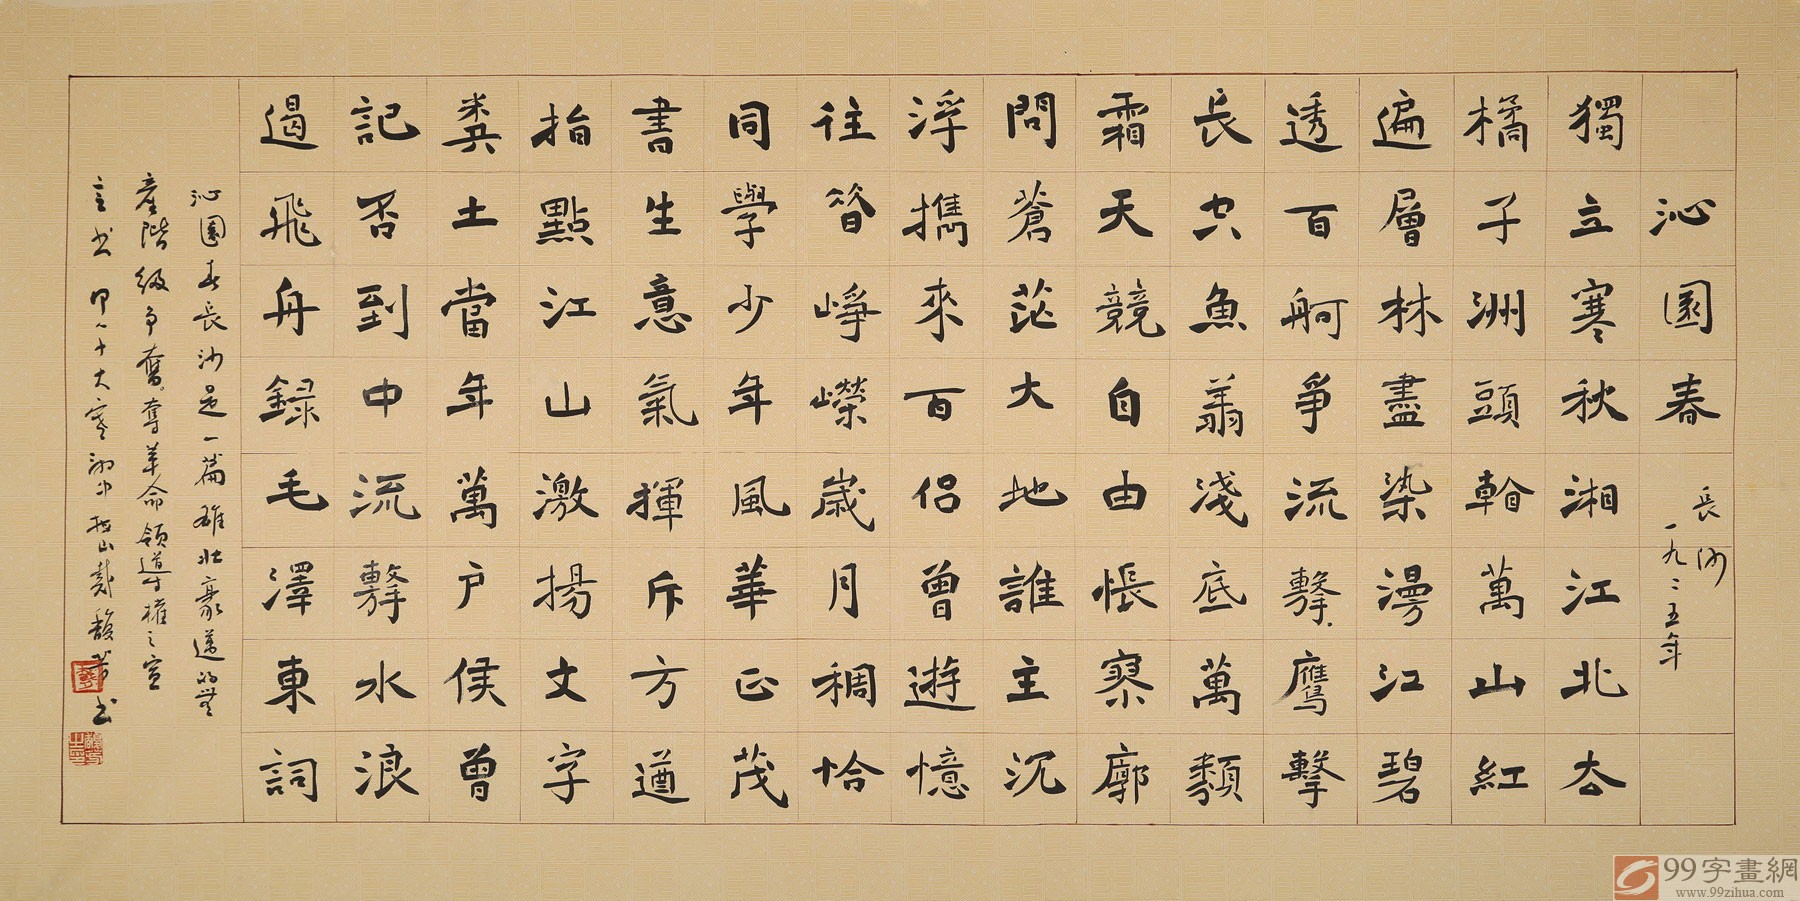 沁園春
長沙
一九二五年
獨立寒秋湘江北去
橘子洲頭看萬山紅
遍層林盡染漫江碧
透百舸爭流擊鷹擊
長空魚翔淺底萬類
霜天競自由悵寥廓
問蒼茫大地誰主沉
浮攜來百侶曾遊憶
往昔崢嶸歲月稠恰
同學少年風華正茂
書生意氣揮斥方遒
指點江山激揚文字
糞土當年萬戶侯曾
記否到中流擊水浪
遏飛舟録毛澤東詞
沁園春長沙是一篇雄壯豪邁的無
產階級爭奮奪革命領導權之宣
言書 甲午大寒 山戴馥芳書
99字畫網
www.99zihua.com